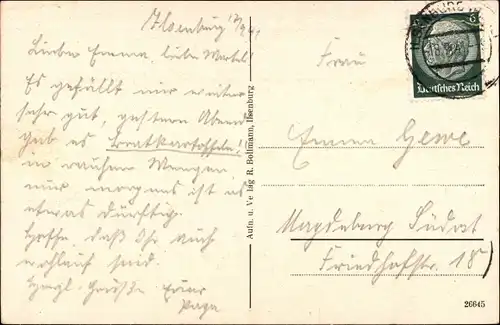 Ilsenburg 17/9 41
Liebe Emma, liebe Martel!
Es gefällt mir weiter
sehr gut, gestern Abend
gab es Bratkartoffeln!
in rauhen Mengen,
nur morgens ist es
etwas dürftig.
Hoffe, daß Ihr auch
wohlauf seid.
Herzl. Grüße Euer
Papa
Aufn. u. Verlag R. Boltmann, Ilsenburg
6
Deutsches Reich
Frau
Emma Gewe
Magdeburg Südost
Friedhofstr. 18
26645